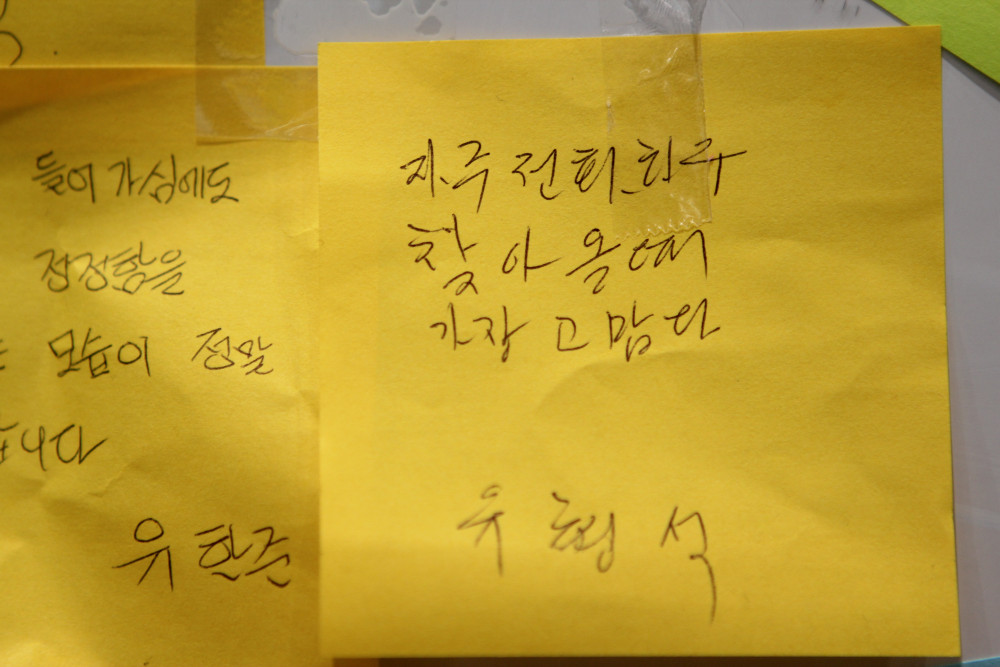 들어 가심에도
정정함을
모습이 정말
습니다
유한준
자주 전화 하구
찾아 올 때
가장 고맙다
유형석